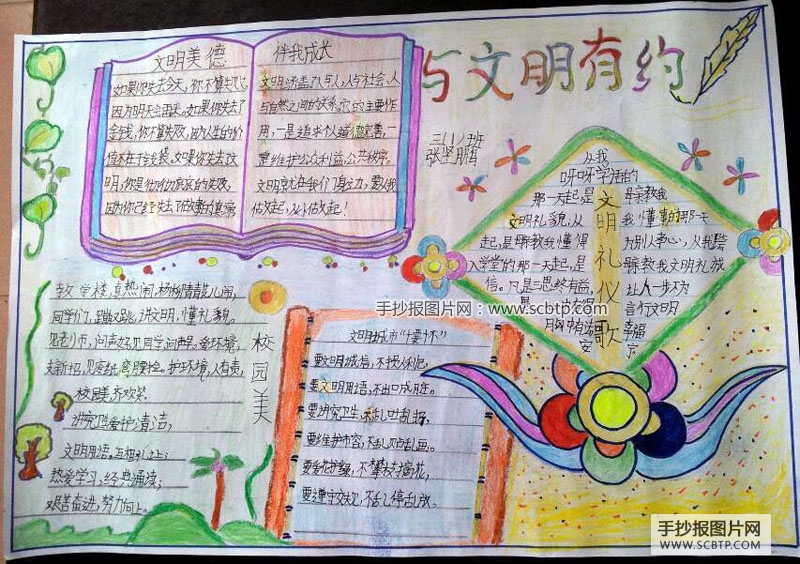 与文明有约
三(1)班
文明美德
如果你失去今天,你不算失败,
因为明天会再来。如果你失去了
金钱,你不算失败,因为人生的价
值不在于钱袋,如果你失去文
明,你是彻彻底底的失败,
因为你已经失去了做事的真谛
伴我成长
文明涵盖了人与人,人与社会、人
与自然之间的关系,它的主要作
用,一是追求个人道德完善,一
是维护公众利益,公共秩序。
文明就在我们身边,要从我
做起,从小做起!
从我
呀呀学语的
那一天起是
文明礼貌,从
起,是 教我懂得
入学堂的那一天起,是
信。凡是三思终有益,
母亲教我
我懂事的那一天
为别人着想,从我踏
教我文明礼诚
让人一步不为
言行文明
幸福
文明礼仪歌
校园美
教学楼,真热闹,
同学们,蹦蹦跳,讲文明,懂礼貌。
见老师,问声好,见同学,问声早,爱环境,
见废纸,弯腰捡。护环境,人有责,
校园美,齐欢笑。
讲究卫生,爱护清洁,
文明用语,互相礼让;
热爱学习,经典诵读;
艰苦奋进,努力向上。
文明城市"六要六不"
要文明诚信,不
要文明用语,不出口成脏。
要讲究卫生,不乱吐乱扔。
要维护市容,不乱贴乱画。
要爱护绿,不攀枝摘花,
要遵守交规,不乱停乱放。
手抄报图片网:www.scbtp.com
手抄报图片网
WWW.SCBTP.COM